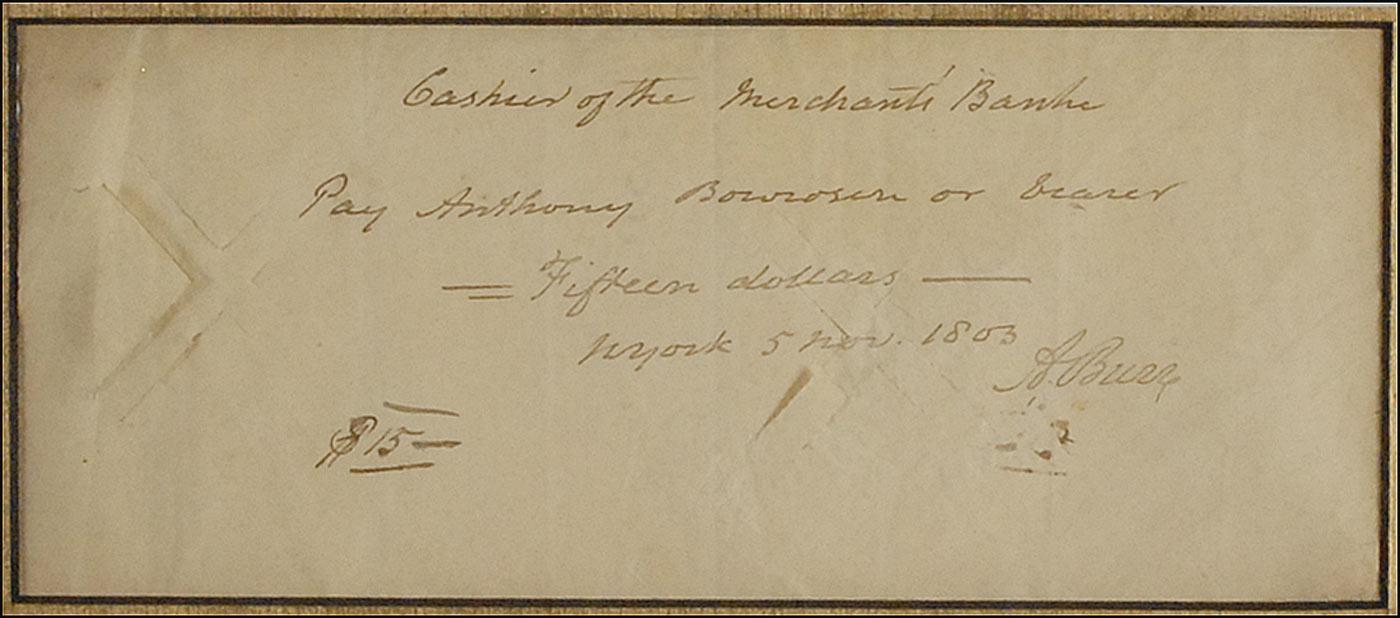 Cashier of the Merchants' Banke
Pay Anthony Bowrosen or bearer
Fifteen dollars
NYork 5 Nov. 1803
A. Burr
$15